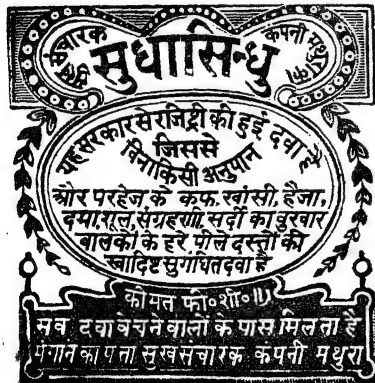 सुखसंचारक
कंपनी मथुरा का
सुधासिन्धु
यह सरकार से रजिष्ट्री की हुई दवा है
जिससे
विना किसी अनुपान
और परहेज़ के कफ, खांसी, हैजा,
दमा, शूल, संग्रहणी, सर्दी का बुखार
बालकों के हरे, पीले दस्तों की
स्वादिष्ट सुगंधित दवा है
कीमत फी॰ शी॰॥)
सब दवा बेचने वालों के पास मिलता है
मंगाने का पता सुखसंचारक कंपनी मथुरा